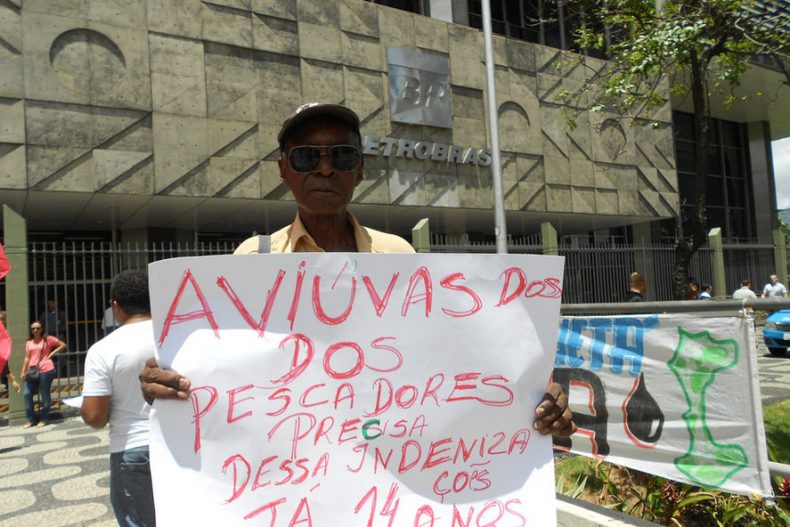 BR
PETROBRAS
AVIÚVAS DOS
DOS
PESCADORES
PRECISA
DESSA INDENIZA
ÇOES
JÁ 14 ANOS